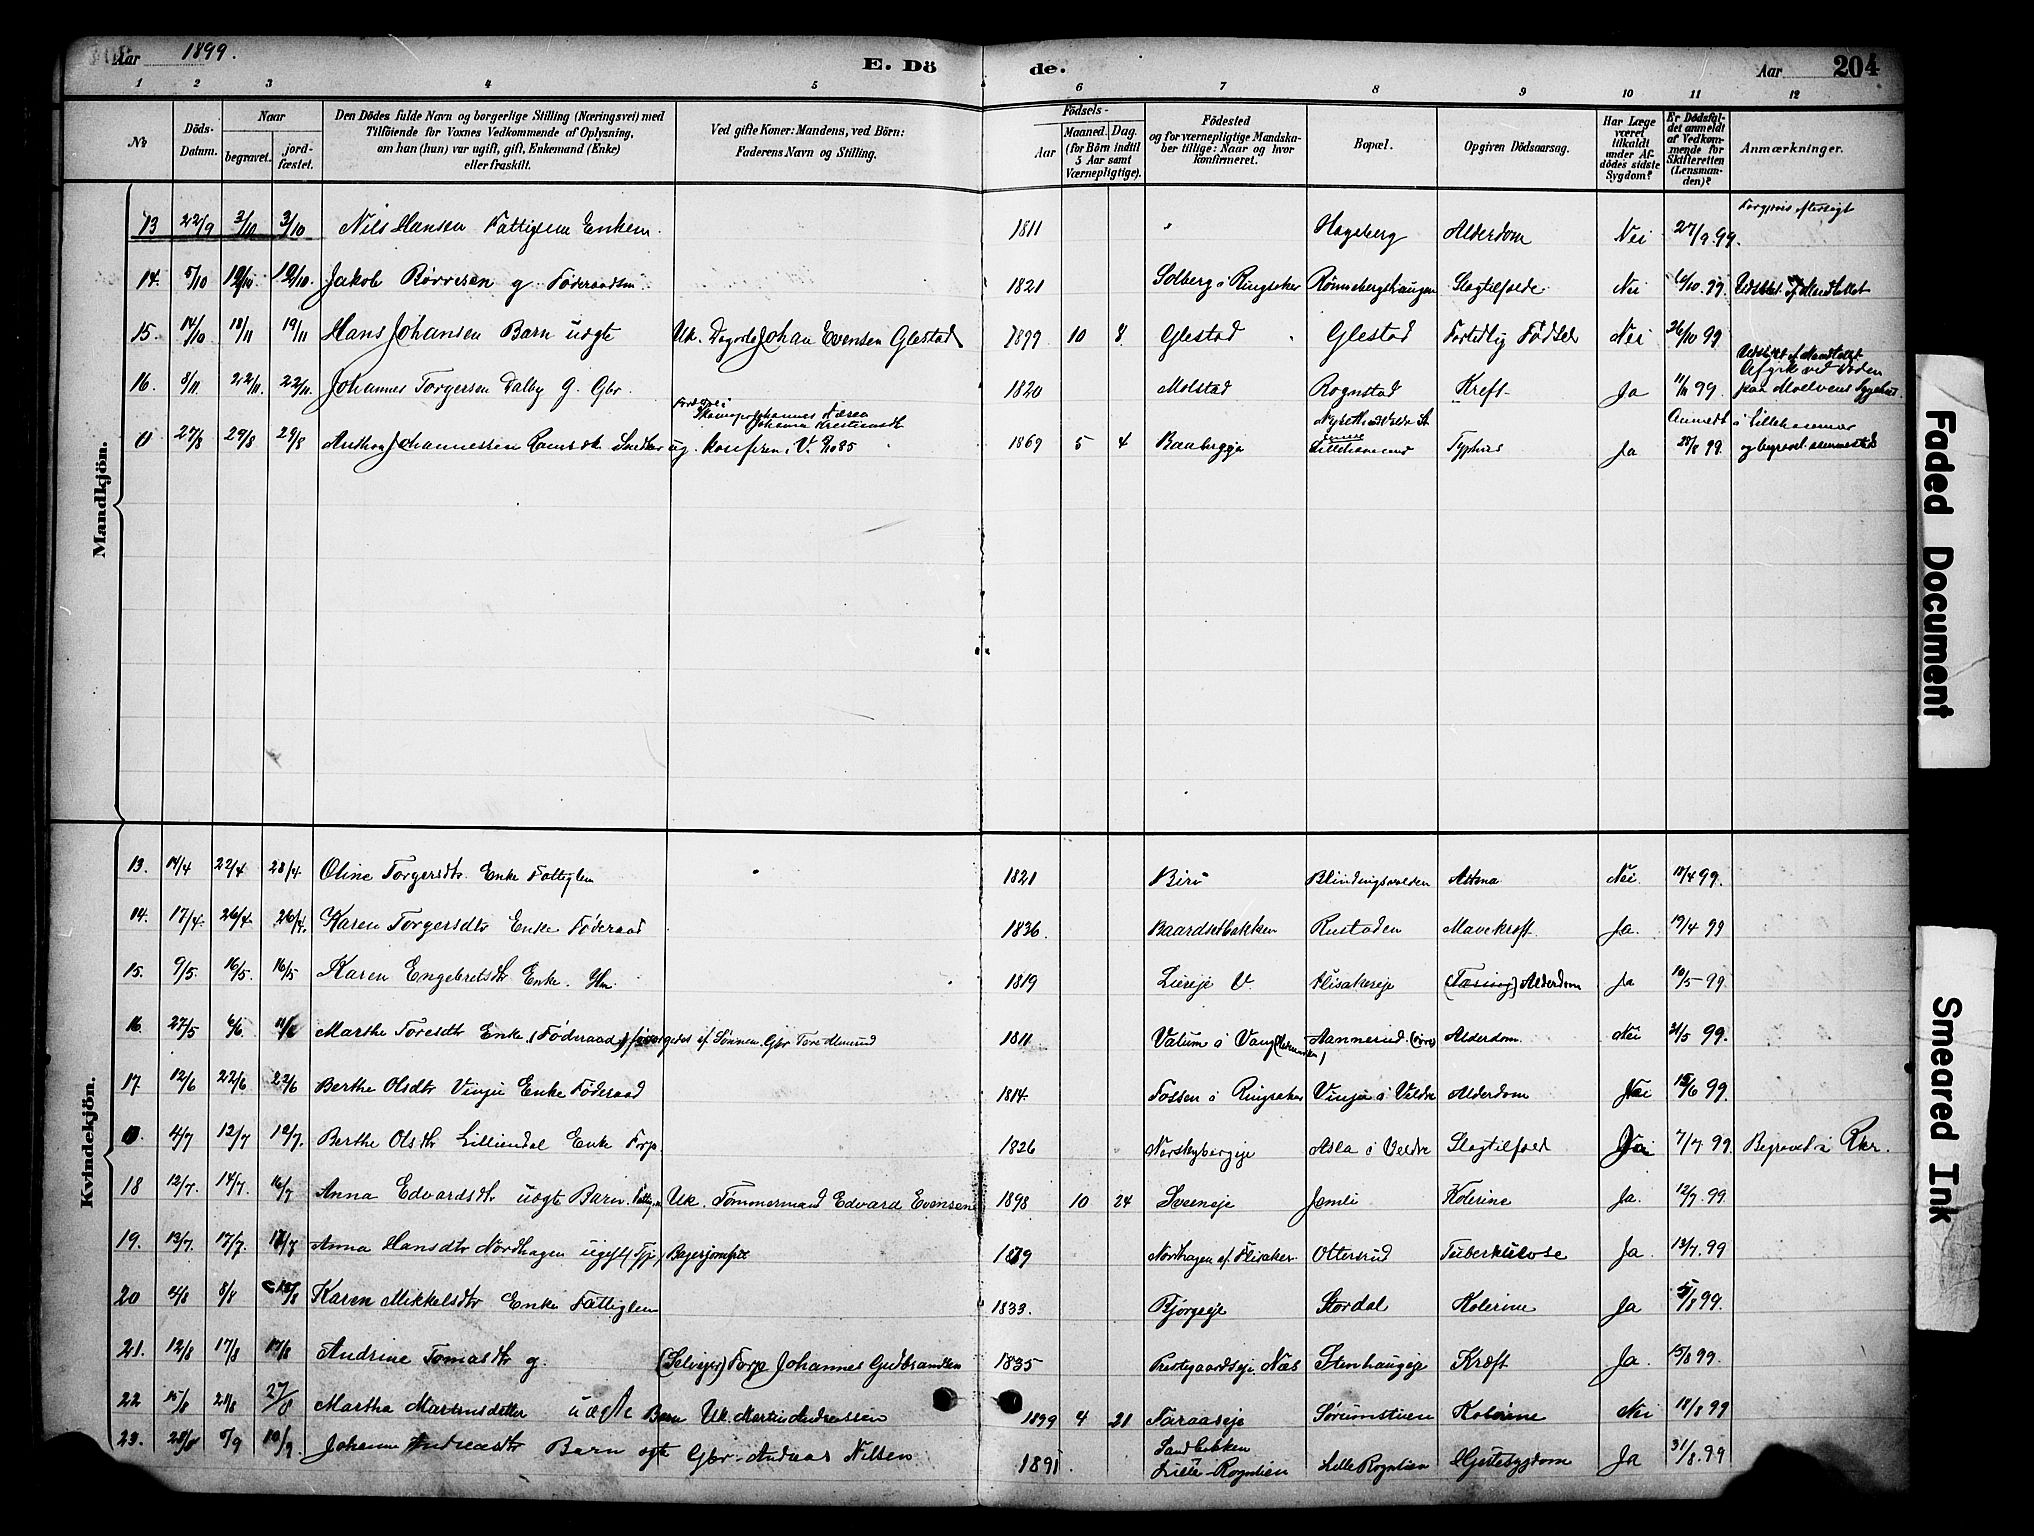 Aar 1899.
E. Döde.
Aar 204
1 2 3 4 5 6 7 8 9 10 11 12
No
Döds-Datum.
Naar
begravet.
jordfæstet.
Den Dödes fulde Navn og borgerlige Stilling (Næringsvei) med
Tilföiende for Voxnes Vedkommende af Oplysning,
om han (hun) var ugift, gift, Enkemand (Enke)
eller fraskilt.
Ved gifte Koner: Mandens, ved Börn:
Faderens Navn og Stilling.
Födsels-
Aar
Maaned. Dag.
(for Börn indtil
5 Aar samt
Værnepligtige).
Födested
og for værnepligtige Mandska-
ber tillige: Naar og hvor
konfirmeret.
Bopæl.
Opgiven Dödsaarsag.
Har Læge
været
tilkaldt
under Af-
dödes sidste
Sygdom?
Er Dödsfal-
det anmeldt
af Vedkom-
mende for
Skifteretten
(Lensman-
den)?
Anmærkninger.
Mandkjön.
13 22/9 3/10 3/10 Nils Hansen Fattiglem Enkem. 1811 " Hageberg Alderdom Nei 27/9 99.
14. 5/10 12/10 12/10 Jakob Børresen g. Føderaadsm 1821 Solberg i Ringsaker Rønnebergshaugen Slagtilfælde Nei 6/10 99.
15. 14/10 18/11 19/11 Hans Johansen Barn uægte Uk. Johan Evensen Glestad 1899 10 8 Glestad Glestad Fortidlig Fødsel Nei 26/10 99
16. 8/11 22/11 22/11 Johannes Torgersen Dalby g. Gbr. 1820 Molstad Rognstad Kreft Ja 11/11 99. paa Moelvens Sygehus
0 27/8 29/8 29/8 Anthon Johannessen ug. 1869 5 4 Baabergeje Typhus Ja 28/8 99. i Lillehammer
Kvindekjön.
13. 14/4 22/4 28/4. Oline Torgersdtr Enke Fattiglem 1821 Biri Blindingsvolden Astma Nei. 18/4 99.
14. 17/4. 26/4. 26/4. Karen Torgersdtr Enke Føderaad 1836 Baardsetbakken Rustaden Mavekræft Ja. 19/4 99
15. 9/5 16/5. 16/5 Karen Engebretsdtr Enke. Hm. 1819 V. Flisakereje Alderdom Ja 10/5 99
16. 27/5 6/6. 11/6 Marthe Toresdtr Enke. (Føderaad) forsørgedes af Sønnen Gbr Tore 1811 Valum i Vang Alderdom. Nei 31/5 99.
17. 12/6 22/6 22/6 Berthe Olsdtr Vinju Enke Føderaad 1814. Fossen i Ringsaker Vinju i Veldre Alderdom Nei 15/6 99.
0. 4/7 12/7 12/7. Berthe Olsdtr Lilliendal Enke Forp. 1826 Norskybergeje Asla i Veldre Slagtilfæld Ja 7/7 99 Begravet i Rkr.
18 12/7. 14/7. 16/7 Anna Edvardsdtr uægt Barn. Uk. Tømmermand Edvard Evensen 1898 10 24 Sveneje Jemli Kolerine Ja. 12/7. 99.
19. 13/7. 17/7. 17/7 Anna Hansdtr Nordhagen ugift Nordhagen af Flisaker Ottersrud Tuberkulose Ja. 13/7. 99
20 2/8 8/8 18/8 Karen Mikkelsdtr Enke Fattiglem 1833. Bjørgeeje Stordal Kolerine Ja 5/8 99.
21. 12/8 17/8 17/8 Andrine Tomasdtr g. (Selveier) Forp Johannes Gulbrandsen 1835 Prestgaardseje. Næs Stenhaugeje Kræft Ja. 15/8 99.
22 15/8 21/8 27/8 Martha Martinsdatter uægte Barn Uk. Martin Andreassen 1899 4 21 Faraaseje Sørumstuen Kolerine Nei 18/8 99
23. 28/8 5/9 10/9. Johanne Andreasdtr Barn ægte Gbr. Andreas Nilsen 1891 Sandbakken Lille Rognlien Lille Rognlien Hjertesygdom Ja 31/8. 99
Faded Document
Smeared Ink